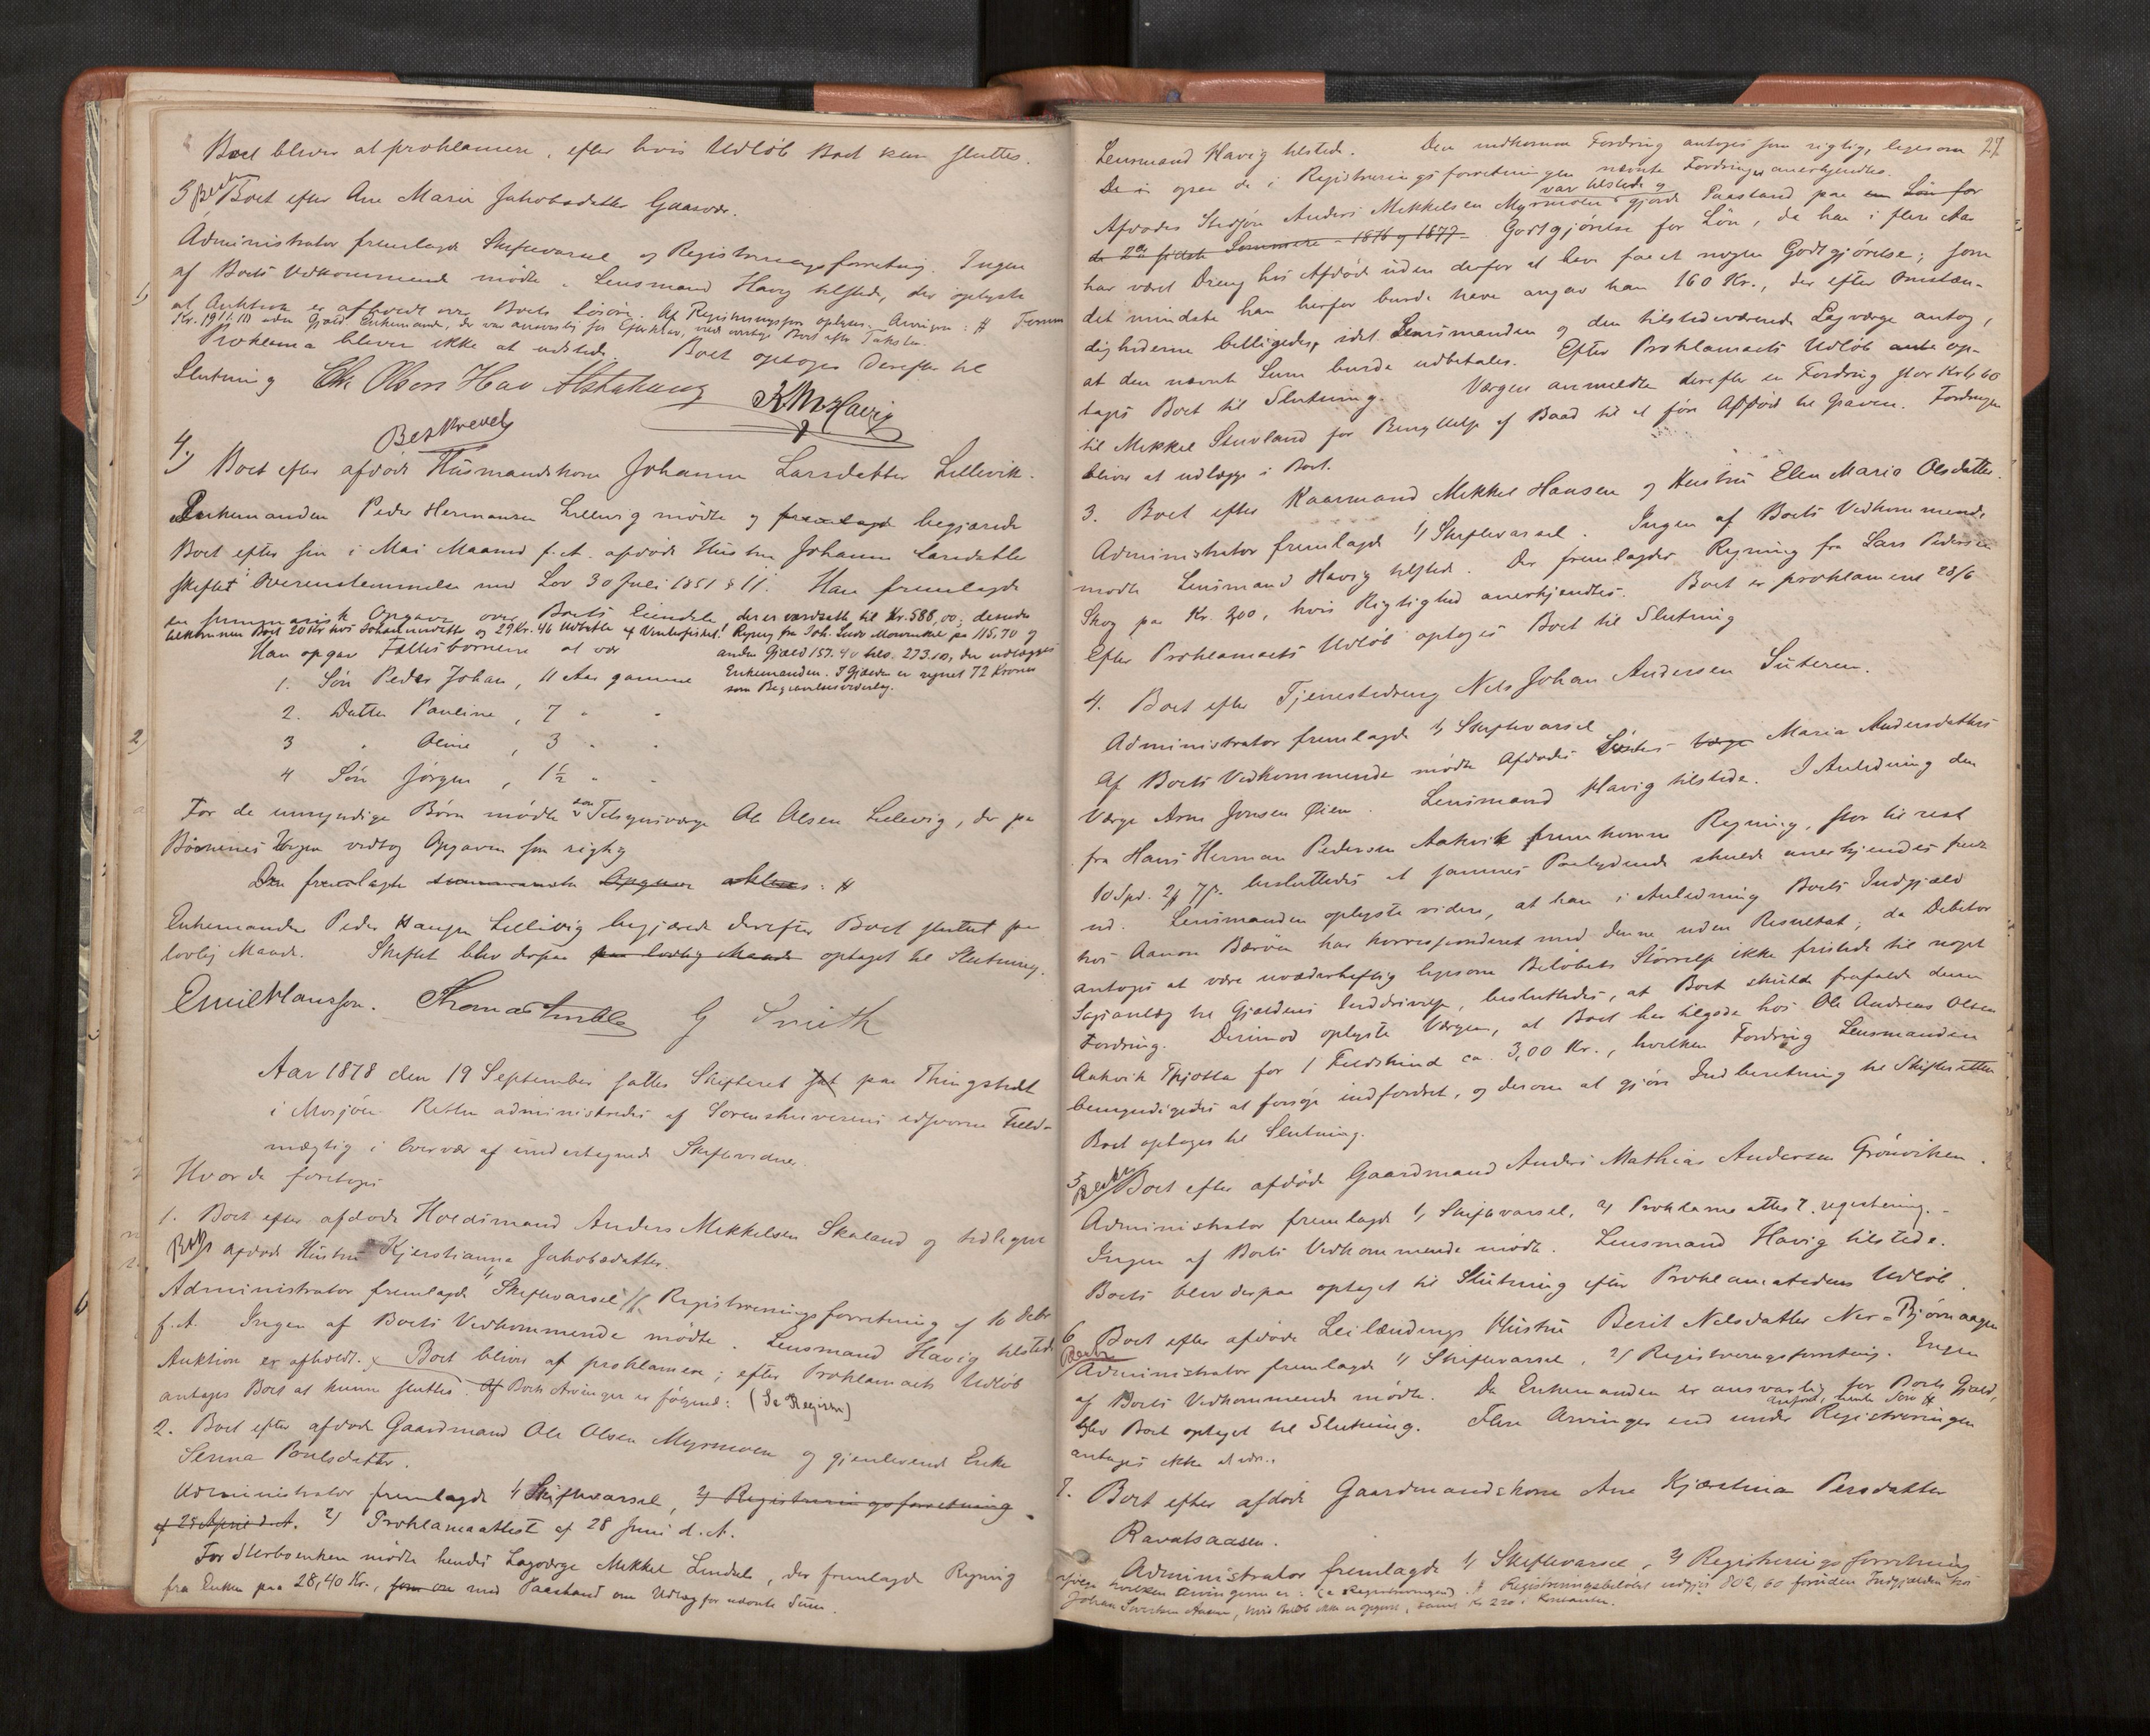 Boet bliver at proklamere, efter hvis Udløb Boet kan sluttes.
3 Boet efter Ane Marie Jakobsdatter Gaasvær.
Administrator fremlagde Skiftevarsel og Registreringsforretning. Ingen
af Boets Vedkommende mødte. Lensmand Havig tilstede, der oplyste
at Auktion er afholdt over Boets Løsøre. Af Registreringsfor. oplyses Arvingerne: #
Proklama bliver ikke at udstede. Boet optoges derefter til
Slutning Chr Olsen Hav Alstahaug K M Havig
Beskrevet
4) Boet efter afdøde Husmandskone Johanna Larsdatter Lillevik.
Enkemanden Peder Hermansen Lillevig mødte og fremlagde begjærede
Boet efter sin i Mai Maaned f.A. afdøde Hustru Johanna Larsdatter
skiftet i Overensstemmelse med Lov 30 Juli 1851 § 11. Han fremlagde
en summarisk Opgave over Boets Eiendele der er værdsatte til Kr. 588,00; desuden
Han opgav Fællesbørnene at være
anden Gjæld 157.40 tils. 273.10, der udlægges
1. Søn Peder Johan, 11 Aar gammel
Enkemanden. I Gjælden er regnet 72 Kroner
som Begravelsesvederlag.
2. Datter Pauline, 7 " "
3 " Oline, 3 " "
4 Søn Jørgen, 1½ " "
For de umyndige Børn mødte som Tilsynsværge Ole Olsen Lillevig, der paa
Børnenes Vegne vedtog Opgaven som rigtig
Den fremlagte summariske Opgave : #
Enkemanden Peder Hansen Lillevig begjærede derefter Boet sluttet paa
lovlig Maade. Skiftet blev derpaa paa lovlig Maade optaget til Slutning.
Emil Hansson. G Smith
Aar 1878 den 19 September sattes Skifteret sat paa Thingstedet
i Mosjøen Retten administreredes af Sorenskriverens edsvorne Fuld-
mægtig i Overvær af undertegnede Skiftevidner
Hvorda foretoges
1. Boet efter afdøde Anders Mikkelsen Skaland og tidligere
afdøde Hustru Kjerstianna Jakobsdatter.
Administrator fremlagde 1) Skiftevarsel 2) Registreringsforretning af 10 Debr
f.A. Ingen af Boets Vedkommende mødte. Lensmand Havig tilstede
Auktion er afholdt. Boet bliver at proklamere; efter Proklamaets Udløb
antages Boet at kunne sluttes. Af Boets Arvinger er følgende: (Se Registr)
2. Boet efter afdøde Gaardmand Ole Olsen Myrmoen og gjenlevende Enke
Serina Poulsdatter.
Administrator fremlagde 1) Skiftevarsel, 2) Registreringsforretning
af 25 April d.A. 2) Proklamaattest af 28 Juni d.A.
For Sterboenken mødte hendes Lagværge Mikkel Lindset, der fremlagde Regning
fra Enken paa 28,40 Kr., som med Paastand om Udlæg for nævnte Sum.
27
Lensmand Havig tilstede. Den indkomne Fordring antoges som rigtig, ligesom
ogsaa de i Registreringsforretningen nævnte Fordringer anerkjendtes.
var tilstede og
Afdødes Stedsøn Anders Mikkelsen Myrmoen gjorde Paastand paa en Løn for
de 2de sidste Sommere - 1876 og 1877 - Godtgjørelse for Løn, da han i flere Aar
har været Dreng hos Afdøde uden derfor at have faaet nogen Godtgjørelse; som
det mindste han herfor burde have angav han 160 Kr., der efter Omstæn-
dighederne billigedes, idet Lensmanden og den tilstedeværende Lagværge antog,
at den nævnte Sum burde udbetales. Efter Proklamaets Udløb op-
tages Boet til Slutning. Værgen anmeldte derefter en Fordring stor Kr
til Mikkel Stuvland for Benyttelse af Baad til at føre Afdøde til Graven. Fordringen
bliver at udlægge i Boet.
3. Boet efter Kaarmand Mikkel Hansen og Hustru Elen Maria Olsdatter.
Administrator fremlagde 1) Skiftevarsel. Ingen af Boets Vedkommende
mødte Lensmand Havig tilstede. Der fremlagdes Regning fra Lars Pedersen
Skog paa Kr. 2,00, hvis Rigtighed anerkjendtes. Boet er proklameret 28/6
Efter Proklamaets Udløb optoges Boet til Slutning
4. Boet efter Tjenestedreng Nels Johan Andersen Suteren.
Administrator fremlagde 1) Skiftevarsel
Af Boets Vedkommende mødte Afdødes Søsters Værge Maria Andersdatters
Værge Arne Jonsen Øien. Lensmand Havig tilstede. I Anledning den
fra Hans Herman Pedersen Aakvik fremkomne Regning, stor til rest
10 Spd. 2 # 7 β. besluttedes at sammes Paalydende skulde anerkjendes fuldt
ud. Lensmanden oplyste videre, at han i Anledning Boets Indgjæld
hos Aamon Bærøen har korresponderet med denne uden Resultat; da Debitor
antoges at være uvederheftig ligesom Beløbets Størrelse ikke fristede til noget
Sagsanlæg til Gjældens Inddrivelse, besluttedes, at Boet skulde frafalde denne
Fordring. Derimod oplyste Værgen, at Boet har tilgode hos Ole Andreas Olsen
Aakvik Thjøtta for 1 Fældskind ca. 3,00 Kr., hvilken Fordring Lensmanden
bemyndigedes at forsøge indfordret, og derom at gjøre Indberetning til Skifteretten
Boet optoges til Slutning.
5 Boet efter afdøde Gaardmand Anders Mathias Andersen Grønviken.
Administrator fremlagde 1) Skiftevarsel, 2) Proklama attest. registrering. -
Ingen af Boets Vedkommende mødte. Lensmand Havig tilstede.
Boets blev derpaa optaget til Slutning efter Proklamatidens Udløb.
6 Boet efter afdøde Leilændings Hustru Berit Nelsdatter Ner-Bjørnaagen
Administrator fremlagde 1) Skiftevarsel, 2) Registreringsforretning. Ingen
af Boets Vedkommende mødte. Da Enkemanden er ansvarlig for Boets Gjæld,
blev Boet optaget til Slutning. Flere Arvinger end under Registreringen
antages ikke at være.
7. Boet efter afdøde Gaardmandskone Ane Kjærstina Persdatter
Ravatsaasen.
Administrator fremlagde 1) Skiftevarsel, 2) Registreringsforretning
ifølge hvilken Arvingerne er: (se Registreringen). # Registreringsbeløbet udgjør 802,60 foruden Indgjælden hos